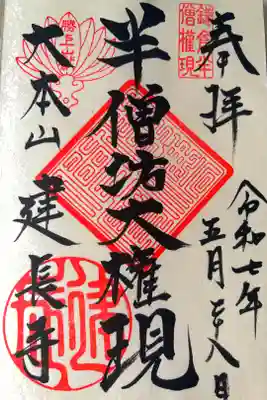 奉拝
鎌倉半
僧権現
令和七年
五月二十八日
半僧坊大権現
勝上山
大本山 建長寺